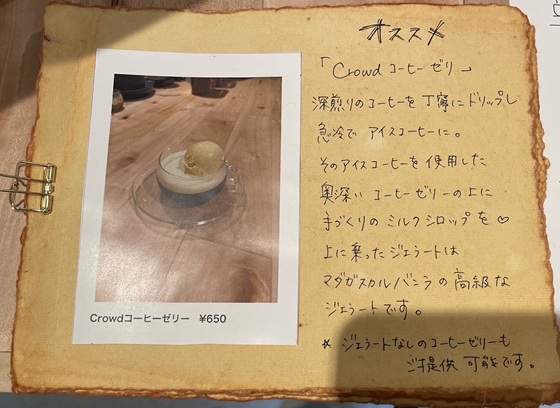 オススメ
「Crowd コーヒーゼリー」
深煎りのコーヒーを丁寧にドリップし
急冷で アイスコーヒーに。
そのアイスコーヒーを使用した
奥深い コーヒーゼリーの上に
手づくりの ミルクシロップを♡
上に乗ったジェラートは
マダガスカルバニラの高級な
ジェラートです。
* ジェラートなしのコーヒーゼリーも
ご提供 可能です。
Crowdコーヒーゼリー ¥650